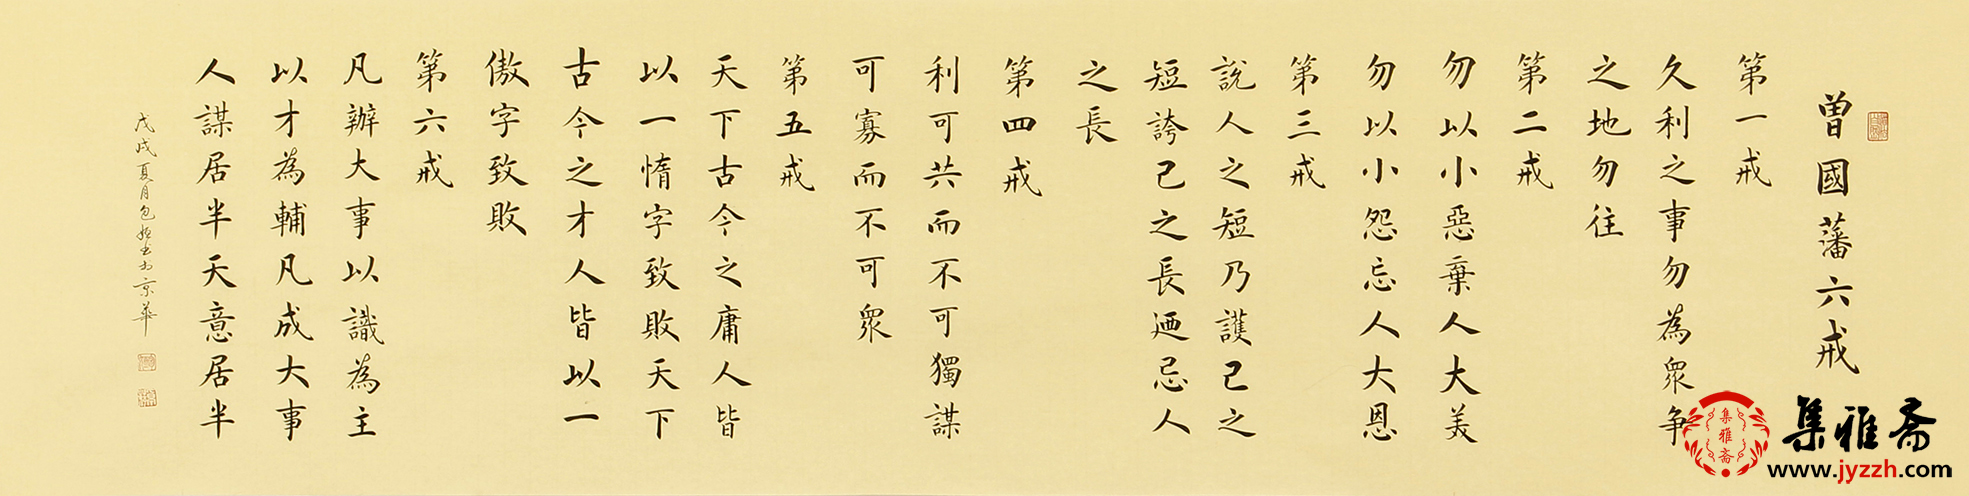 曾國藩六戒
第一戒
久利之事勿為眾争
之地勿往
第二戒
勿以小惡棄人大美
勿以小怨忘人大恩
第三戒
說人之短乃護己之
短誇己之長迺忌人
之長
第四戒
利可共而不可獨謀
可寡而不可眾
第五戒
天下古今之庸人皆
以一惰字致敗天下
古今之才人皆以一
傲字致敗
第六戒
凡辦大事以識為主
以才為輔凡成大事
人謀居半天意居半
戊戌夏月包
書於京華
集雅斋
集雅斋
www.jyzzh.com